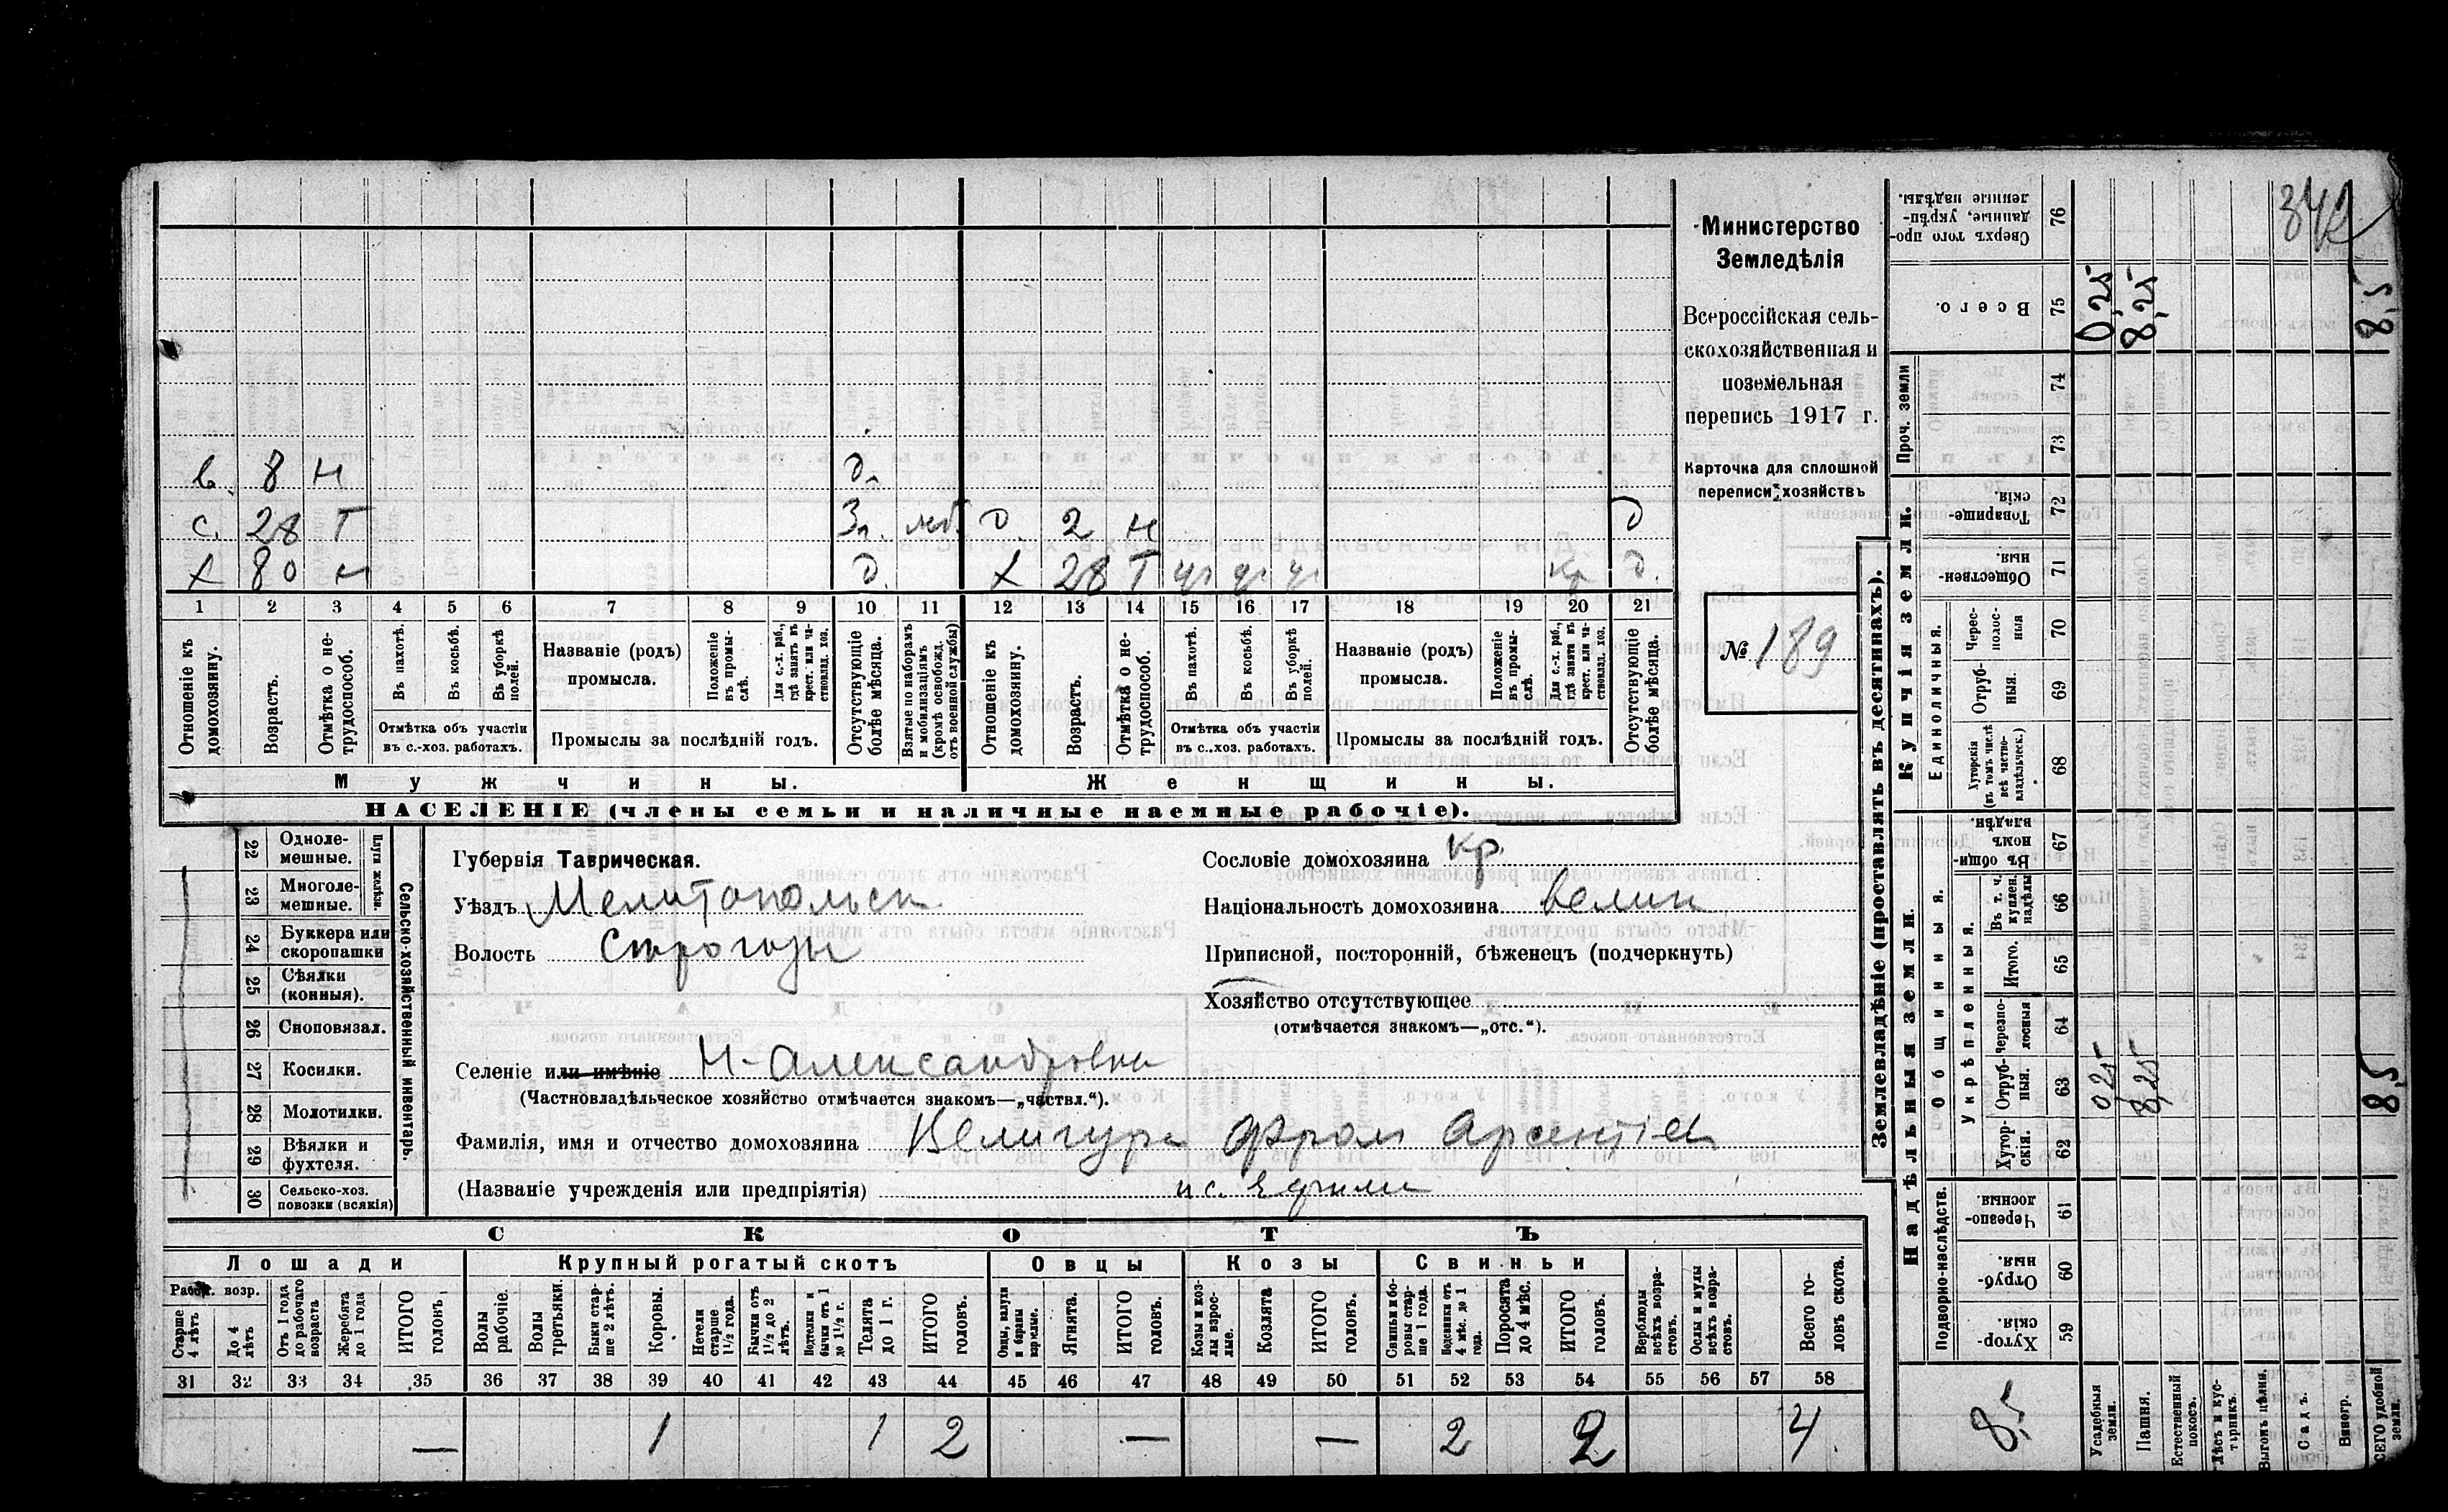 Министерство
Земледѣлія
Всероссійская сель-
скохозяйственная и
поземельная
перепись 1917 г.
Карточка для сплошной
переписи хозяйствъ
№ 189
в. 8 н д.
с. 28 Т Зл. мб. д 2 н д
х 80 н д. х 28 Т уч уч уч кр д.
1 2 3 4 5 6 7 8 9 10 11 12 13 14 15 16 17 18 19 20 21
Отношеніе къ домохозяину.
Возрастъ.
Отмѣтка о не-трудоспособ.
Въ пахотѣ.
Въ косьбѣ.
Въ уборкѣ полей.
Отмѣтка объ участіи
въ с.-хоз. работахъ.
Названіе (родъ)
промысла.
Положеніе въ промы-слѣ.
Для с.-х. раб., гдѣ занятъ въ крест. или ча-стновлад. хоз.
Промыслы за послѣдній годъ.
Отсутствующіе болѣе мѣсяца.
Взятые по наборамъ и мобилизаціямъ (кромѣ освобожд. отъ военной службы)
Отношеніе къ домохозяину.
Возрастъ.
Отмѣтка о не-трудоспособ.
Въ пахотѣ.
Въ косьбѣ.
Въ уборкѣ полей.
Отмѣтка объ участіи
въ с.-хоз. работахъ.
Названіе (родъ)
промысла.
Положеніе въ промы-слѣ.
Для с.-х. раб., гдѣ занята въ крест. или ча-стновлад. хоз.
Промыслы за послѣдній годъ.
Отсутствующіе болѣе мѣсяца.
Мужчины. Женщины.
НАСЕЛЕНІЕ (члены семьи и наличные наемные рабочіе).
22 Одноле-мешные.
23 Многоле-мешные.
24 Буккера или скоропашки
25 Сѣялки (конныя).
26 Сноповязал.
27 Косилки.
28 Молотилки.
29 Вѣялки и фухтеля.
30 Сельско-хоз. повозки (всякія)
Плуги желѣзн.
Сельско-хозяйственный инвентарь.
Губернія Таврическая.
Уѣздъ Мелитопольск
Волость
Сословіе домохозяина кр.
Національность домохозяина велик
Приписной, посторонній, бѣженецъ (подчеркнуть)
Хозяйство отсутствующее
(отмѣчается знакомъ—„отс.“).
Селеніе или имѣніе Н-Александровка
(Частновладѣльческое хозяйство отмѣчается знакомъ—„частвл.“).
Фамилія, имя и отчество домохозяина Велигура Фрол Арсентіев
(Названіе учрежденія или предпріятія)
СКОТЪ
Лошади Крупный рогатый скотъ Овцы Козы Свиньи
Рабоч. возр.
Старше 4 лѣтъ
До 4 лѣтъ
Отъ 1 года до рабочаго возраста
Жеребята до 1 года
ИТОГО головъ.
Волы рабочіе.
Волы третьяки.
Быки стар-ше 2 лѣтъ.
Коровы.
Нетели старше 1½ года.
Бычки отъ 1½ до 2 лѣтъ.
Подтелки и бычки отъ 1 до 1½ г.
Телята до 1 г.
ИТОГО головъ.
Овцы, валухи и бараны взрослые.
Ягнята.
ИТОГО головъ.
Козы и коз-лы взрос-лые.
Козлята
ИТОГО головъ.
Свиньи и бо-ровы стар-ше 1 года.
Подсвинки отъ 4 мѣс. до 1 года.
Поросята до 4 мѣс.
ИТОГО головъ.
Верблюды всѣхъ возра-стовъ.
Ослы и мулы всѣхъ возра-стовъ.
Всего го-ловъ скота.
31 32 33 34 35 36 37 38 39 40 41 42 43 44 45 46 47 48 49 50 51 52 53 54 55 56 57 58
— 1 1 2 — — 2 2 4
Землевладѣніе (проставлять въ десятинахъ).
Надѣльныя земли. Купчія земли. Проч. земли
Подворно-наслѣдств. Общинныя. Укрѣпленныя. Единоличныя.
76 Сверхъ того про-данные, укрѣп-ленные надѣлы.
75 Всего. 0,25 8,25 8,5
74
73
72 Товарище-скія.
71 Обществен-ныя.
70 Черес-полос-ныя
69 Отруб-ныя.
68 Хуторскія (въ томъ числѣ всѣ частно-владѣльческ.)
67 Въ общин-номъ владѣн.
66 Въ т. ч. куплен. надѣлы
65 Итого.
64 Черезпо-лосныя
63 Отруб-ныя. 0,25 8,25 8,5
62 Хутор-скія.
61 Черезпо-лосныя
60 Отруб-ныя.
59 Хутор-скія.
8,5
Усадебныя земли.
Пашня.
Естественный покосъ.
Лѣсъ и кус-тарникъ.
Выгонъ цѣлин.
Садъ.
Виногр.
ВСЕГО удобной земли.
342